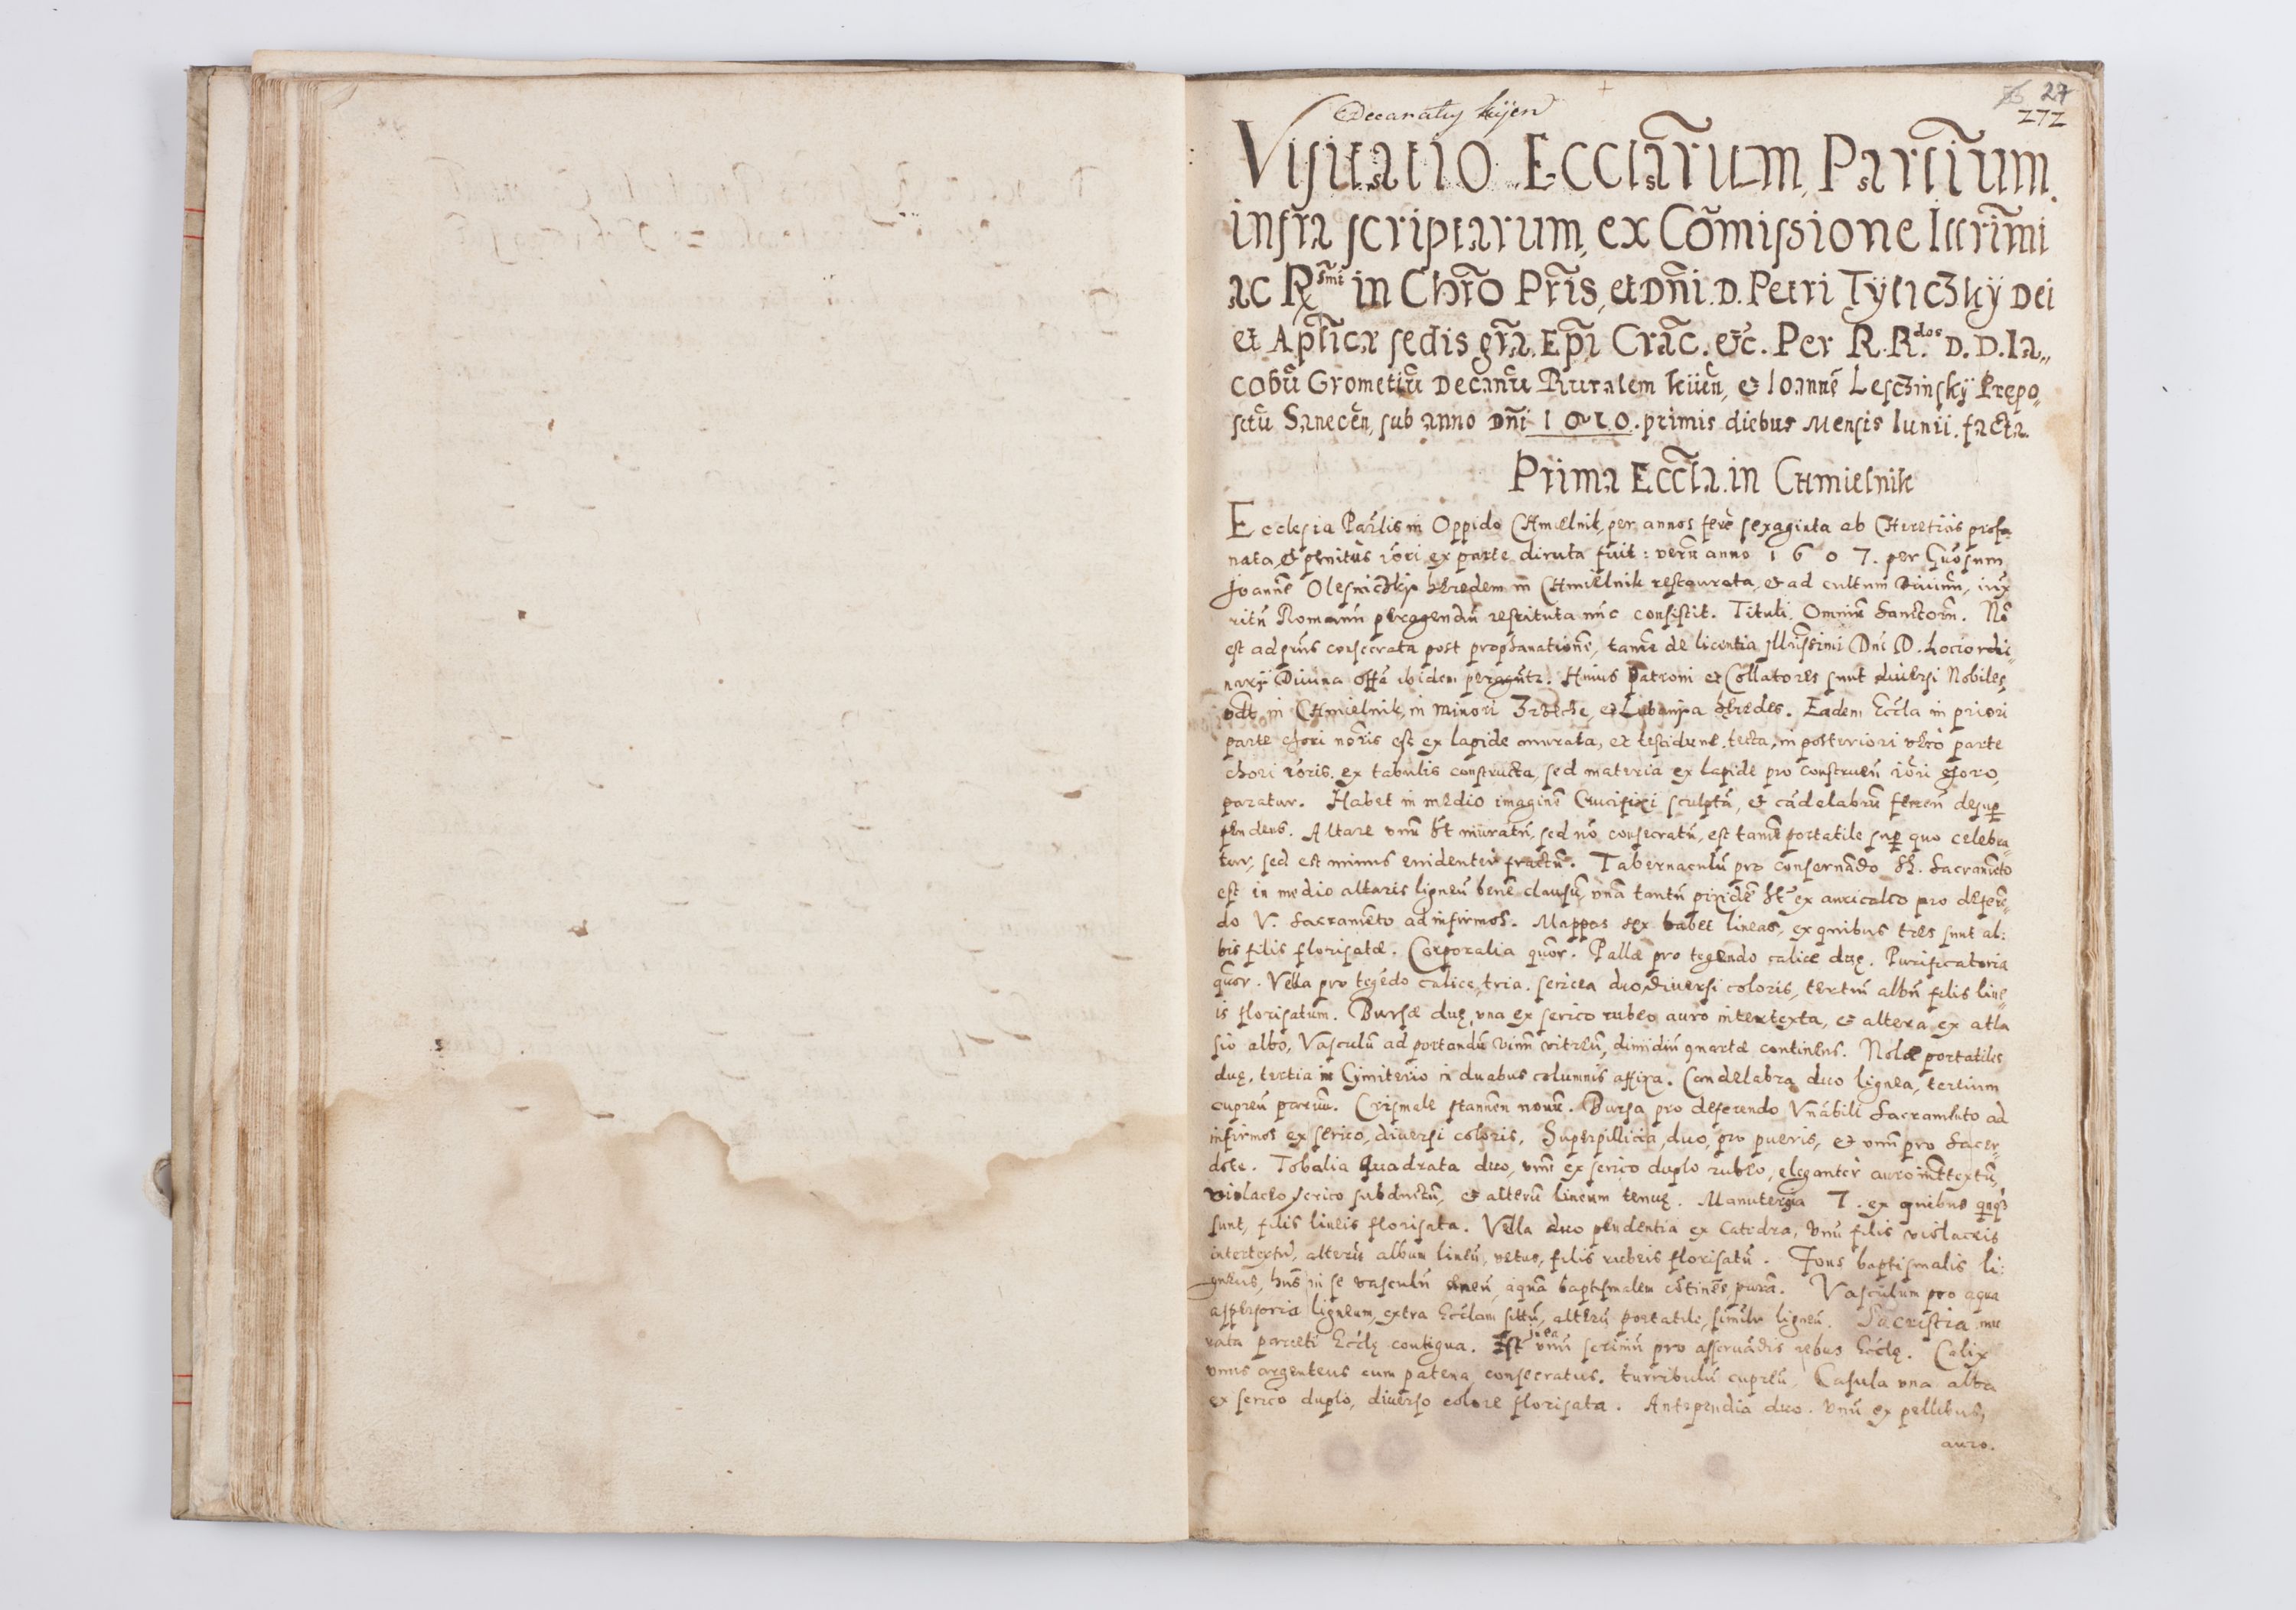 27
272
Decanatus kijen
Visitatio Eccłarum, Parłium
infra scriptarum, ex Cōmissione Illr̃imi
ac R^smi in Chr̃o Pr̃is, et Dñi. D. Petri Tÿliczkÿ Dei
et Aplicæ sedis gr̃a. Ep̃i Crac. etc. Per R.R.dos D.D. Ia„
cobū Grometiū Decanū Ruralem kiien, et Ioannē Lesczinskÿ Prepo„
sitū Sanecen, sub anno Dñi 1610. primis diebus Mensis Iunii. facta
Prima Eccła in CHmielnik
Ecclesia Parlis in Oppido CHmielnik, per annos ferè sexaginta ab CHæreticis profa„
nata, et penitus ex parte diruta fuit: verū anno 1607. per
Joannē Olesniczkÿ heredem in CHmielnik restaurata, et ad cultum Diuinū, iux
ritū Romanū peragendū restituta nūc consistit. Tituli Omniū Sanctorū. Nō
est adhuc consecrata post prophanationē, tamē de licentia Illrissimi Dni D. Loci ordi„
narÿ Diuina offa ibidem peragūtr. Huius Patroni et Collatores sunt diuersi Nobiles
in CHmielnik, in minori et Lubania hæredes. Eadem Eccła in priori
parte chori est ex lapide murata, et testudine tecta, in posteriori vero parte
chori ex tabulis constructa, sed materia ex lapide pro construen choro,
paratur. Habet in medio imaginē Crucifixi sculptā, et cādelabrū ferreū desup
pendens. Altare vnū ht muratū, sed nō consecratū, est tamē portatile sup quo celebra„
tur, sed est minus euidenter fractū. Tabernaculū pro conseruādo SS. Sacramēto
est in medio altaris ligneū benè clausū, vnā tantū pixidē ht ex auricalco pro deferē„
do V. Sacramēto ad infirmos. Mappas sex habet lineas, ex quibus tres sunt al:
bis filis florisatæ. Corporalia quor. Pallæ pro tegendo calice duę. Purificatoria
quor. Vella pro tegēdo calice, tria. sericea duo diuersi coloris, tertiū albū filis line„
is florisatum. Bursæ duę, vna ex serico rubeo auro intertexta, et altera ex atla
sio albo, Vasculū ad portandū vinū vitreū, dimidiū quartæ continens. Nolæ portatiles
duę, tertia in Cÿmiterio in duabus columnis affixa. Candelabra duo lignea, tertium
cupreū paruū. Crismale stanneū nouū. Bursa pro deferendo Vnābili Sacramēto ad
infirmos ex serico, diuersi coloris. Superpillicia, duo, pro pueris, et vnū pro Sacer„
dote. Tobalia Quadrata duo, vnū ex serico duplo rubeo, eleganter auro inttextū,
violaceo serico subductū, et alterū lineum tenuę. Manutergia 7. ex quibus
sunt, filis lineis florisata. Vella duo pendentia ex Catedra, Vnū filis violaceis
intertextū, alterū album lineū, vetus, filis rubeis florisatū. Fons baptismalis li:
gneus, hns in se vasculū eneū, aquā baptismalem cōtinēs, purā. Vasculum pro aqua
aspersoria ligneum, extra Eccłam sitū, alterū portatile, similr ligneū. Sacristia mu
rata parieti Eccłę contigua. Est in ea vnū scriniū pro asseruādis rebus Eccłę. Calix
vnus argenteus cum patena consecratus. turribulū cupreū. Casula vna alba
ex serico duplo, diuerso colore florisata. Antependia duo. Vnū ex pellibus,
auro.